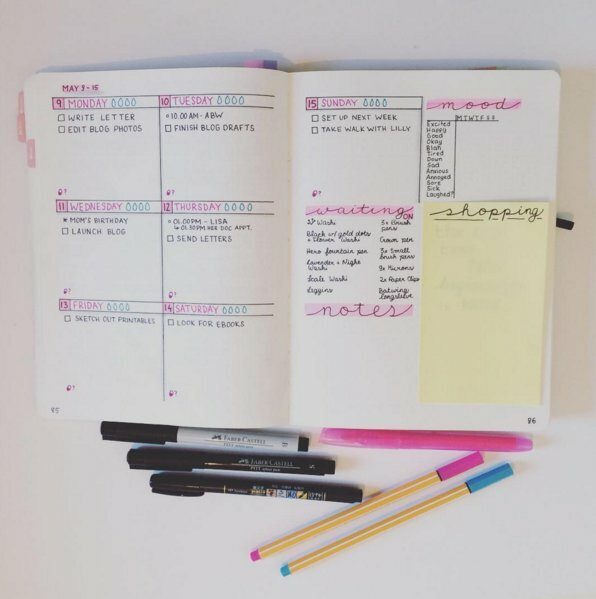 MAY 9-15
9 MONDAY
WRITE LETTER
EDIT BLOG PHOTOS
10 TUESDAY
10.00AM - ABW
FINISH BLOG DRAFTS
11 WEDNESDAY
* MOM'S BIRTHDAY
LAUNCH BLOG
12 THURSDAY
01.00PM - LISA
↳ 01.30PM PER DOC APPT.
SEND LETTERS
13 FRIDAY
SKETCH OUT PRINTABLES
14 SATURDAY
LOOK FOR EBOOKS
85
15 SUNDAY
SET UP NEXT WEEK
TAKE WALK WITH LILLY
mood
M T W T F S S
Excited
Happy
Good
Okay
Blah
Tired
Down
Sad
Anxious
Annoyed
Sore
Sick
Laughed?
waiting ON
Washi
Black w/ gold dots
+ Flower Washi
Hero fountain pen
Lavender + Night
Washi
Scale Washi
Leggins
5x Brush
pens
Crown pen
3x Small
brush pens
9x Microns
2x Paper Clips
Batwing
longsleeve
notes
shopping
86
FABER CASTELL
PITT artist pen
B
FABER CASTELL
PITT artist pen
S